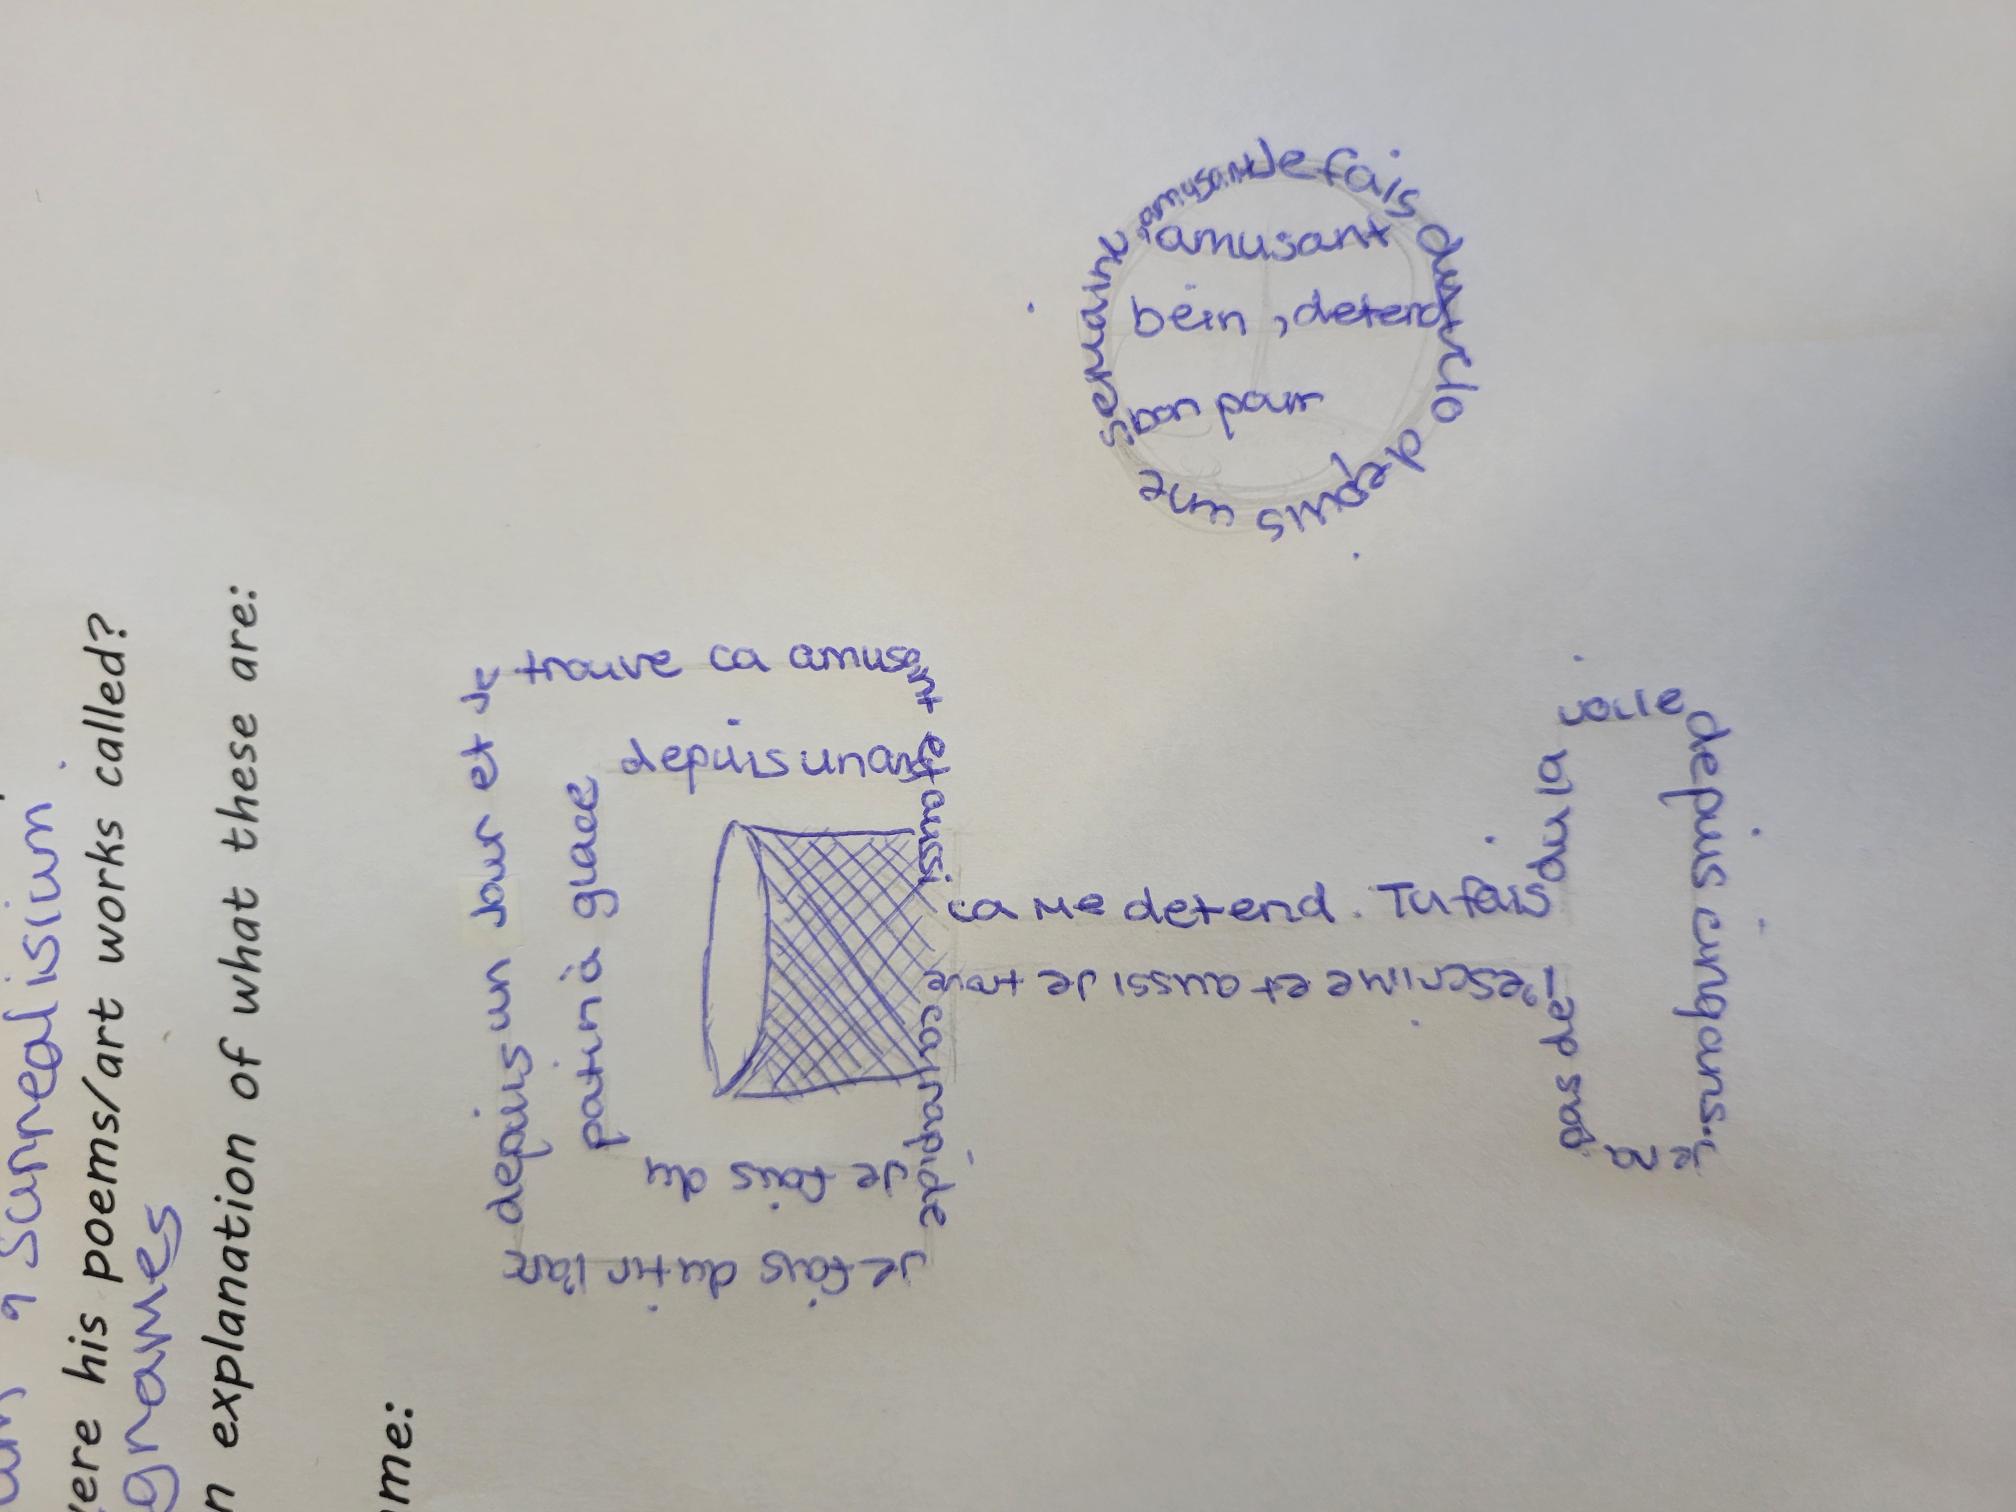 a surrealisium
ere his poems/art works called?
grames
n explanation of what these are:
me:
Je fais du tir l'arc
depuis un Jour et Je
trouve ca amusant
et aussi
ca me detend. Tu fais
du la
voile
depuis cinq ans. Je
na
pas de
l'escrime et aussi Je trove
ca rapide
Je fais du
patin à glace
depuis un ans
Je fais du vélo depuis une semaine
amusant
amusant
bein, detend
bon pour